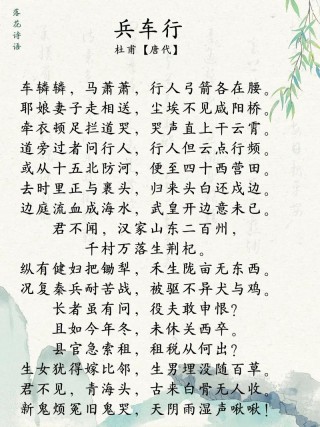 落花诗语
兵车行
杜甫【唐代】
车辚辚，马萧萧，行人弓箭各在腰。
耶娘妻子走相送，尘埃不见咸阳桥。
牵衣顿足拦道哭，哭声直上干云霄。
道旁过者问行人，行人但云点行频。
或从十五北防河，便至四十西营田。
去时里正与裹头，归来头白还戍边。
边庭流血成海水，武皇开边意未已。
君不闻，汉家山东二百州，
千村万落生荆杞。
纵有健妇把锄犁，禾生陇亩无东西。
况复秦兵耐苦战，被驱不异犬与鸡。
长者虽有问，役夫敢申恨？
且如今年冬，未休关西卒。
县官急索租，租税从何出？
生女犹得嫁比邻，生男埋没随百草。
君不见，青海头，古来白骨无人收。
新鬼烦冤旧鬼哭，天阴雨湿声啾啾！